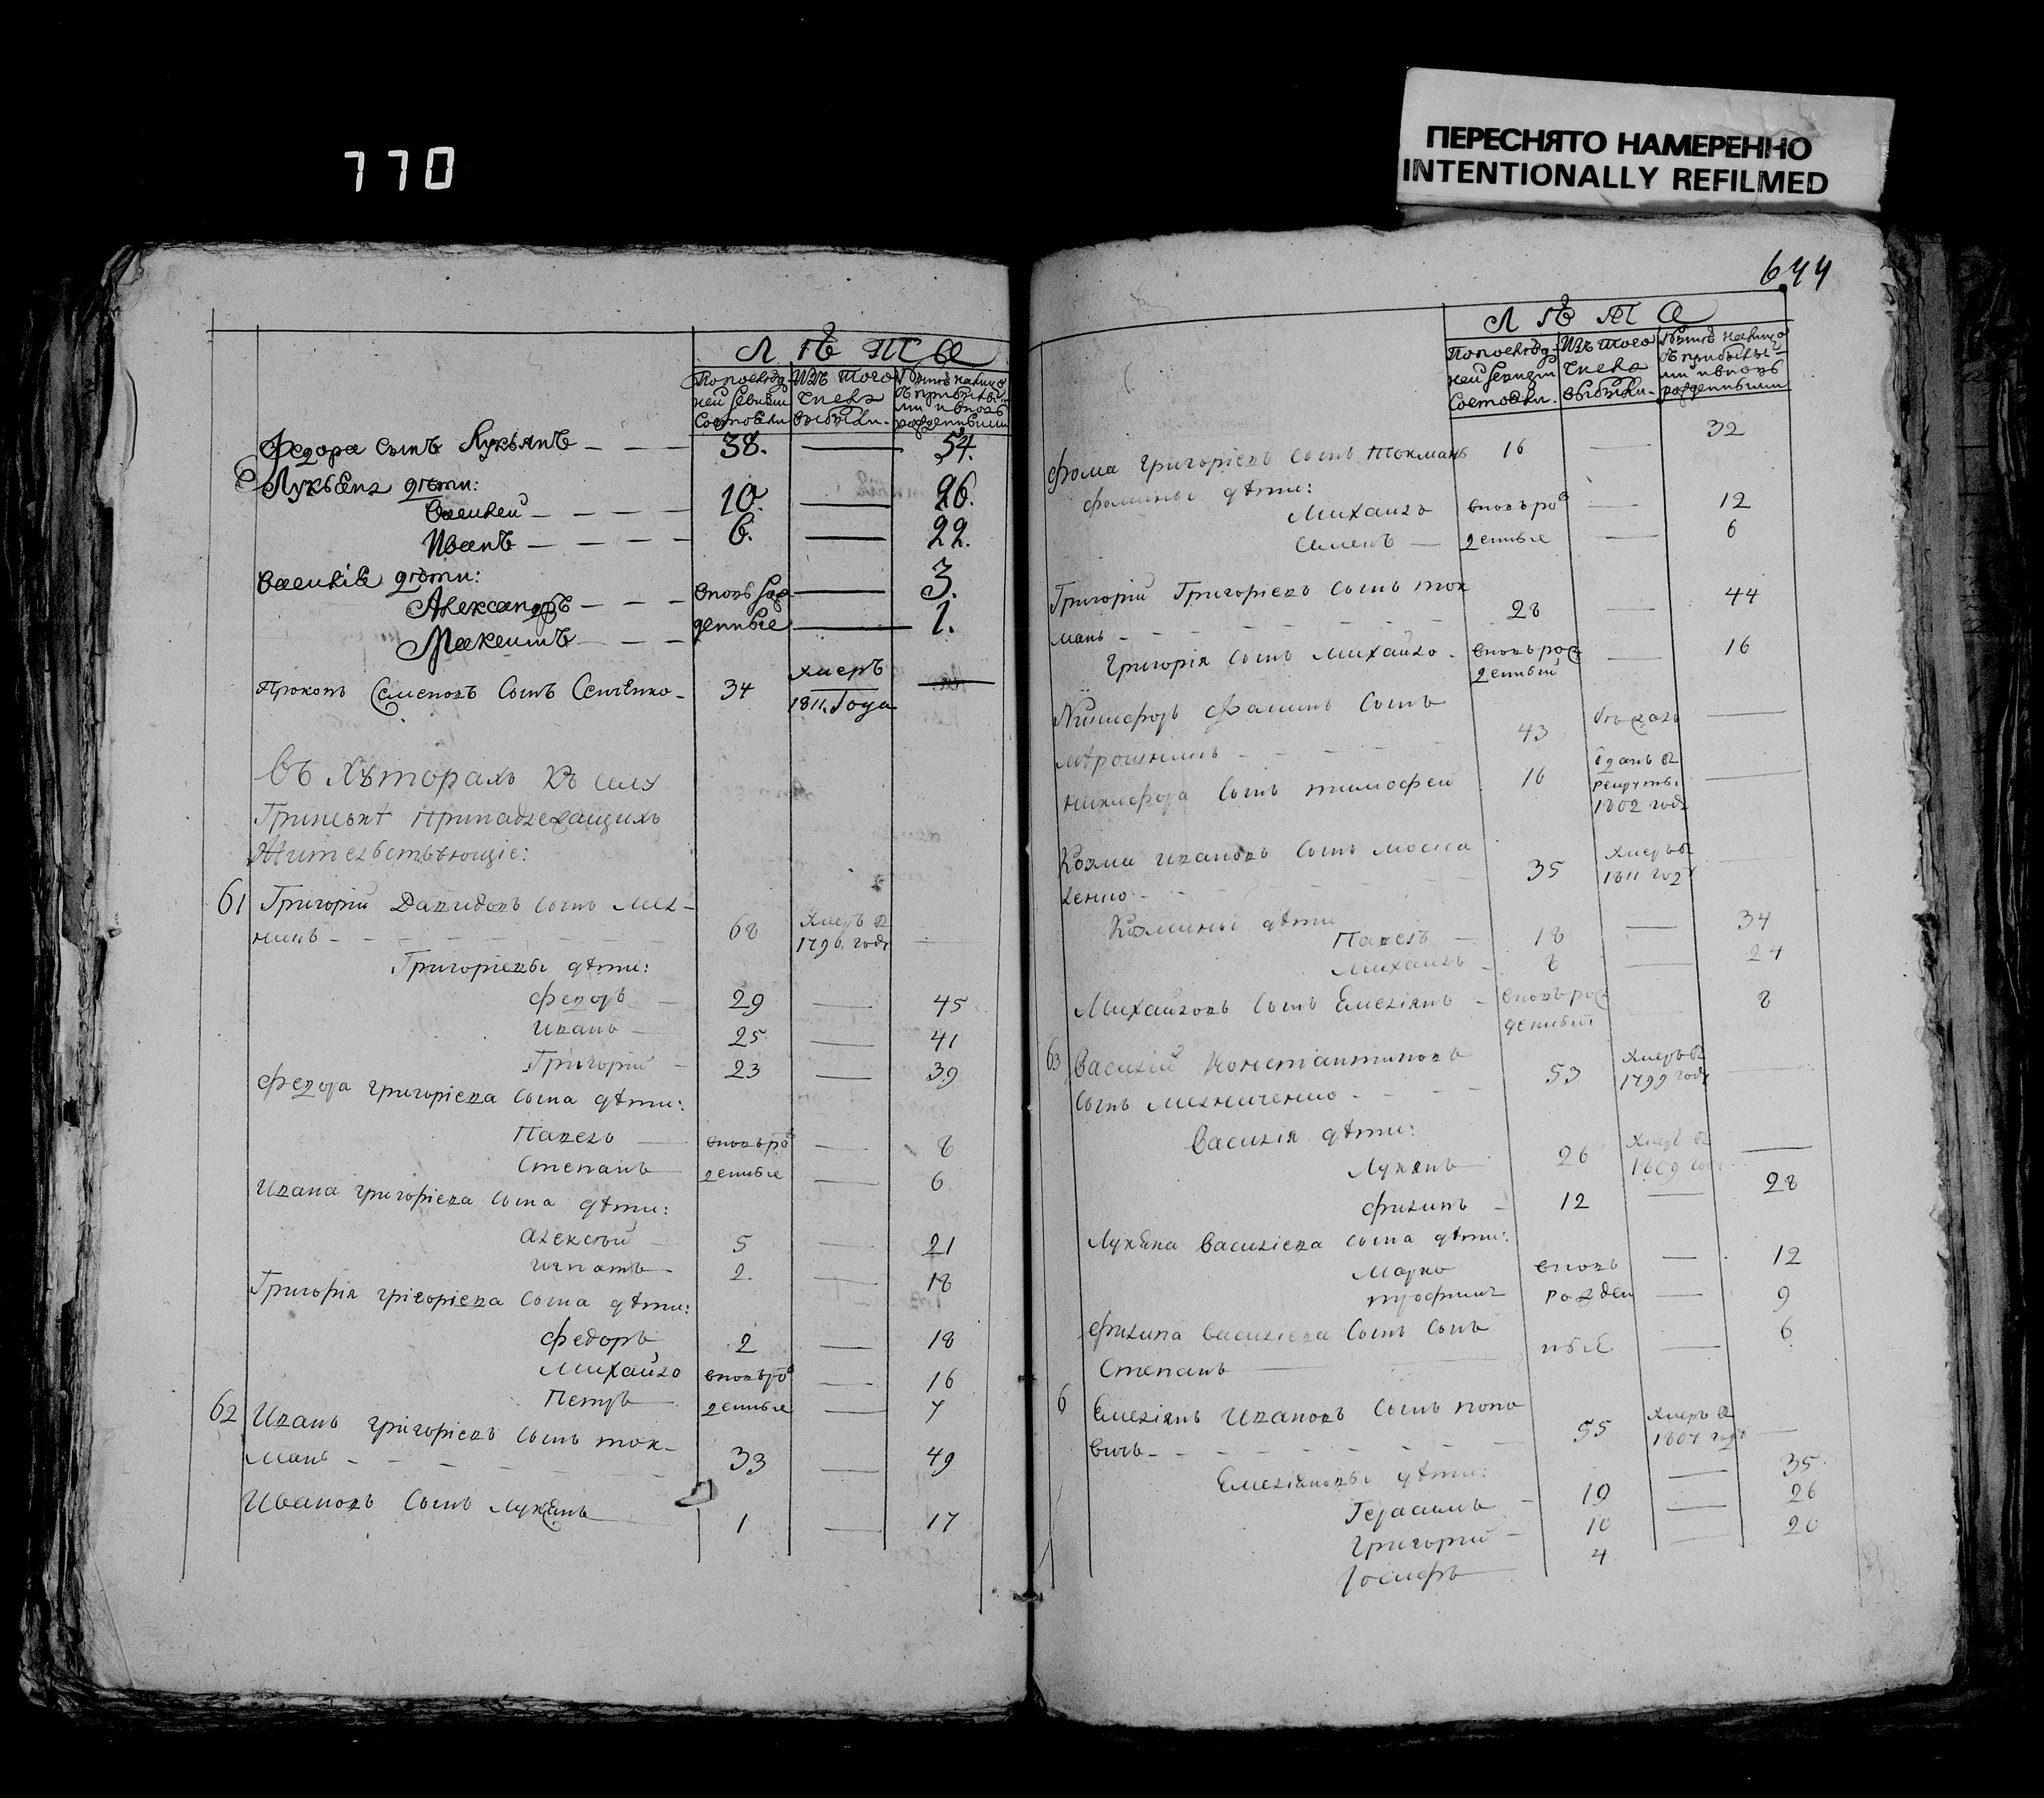 770
ПЕРЕСНЯТО НАМЕРЕННО
INTENTIONALLY REFILMED
ЛѢТА
По последней ревизіи состояли.
Изъ того числа выбыли.
Нынѣ на лицо съ прибылыми и вновь рожденными
Федора сынъ Лукьянъ — 38. — 54.
Лукьяна дѣти:
Василей — 10. — 26.
Иванъ — 6. — 22.
Василія дѣти:
Александръ — вновь рож — 3.
Максимъ — денные — 1.
Прокопъ Семеновъ сынъ 34 умеръ 1811. Года —
Въ хуторахъ къ селу
Гриневкѣ принадлежащихъ
Жительствующіе:
61 Григорій Давидовъ сынъ Мел-
никъ — 68 умеръ въ 1796. году —
Григоріевы дѣти:
Федоръ — 29 — 45
Иванъ — 25 — 41
Григорій — 23 — 39
Федора Григоріева сына дѣти:
Павелъ — вновь ро — 8
Степанъ — жденные — 6
Ивана Григоріева сына дѣти:
Алексѣй — 5 — 21
Игнатъ — 2. — 18
Григорія Григоріева сына дѣти:
Федоръ 2 — 18
Михайло вновь ро — 16
Петръ жденные — 7
62 Иванъ Григоріевъ сынъ Ток-
мань — 33 — 49
Ивановъ сынъ Лукьянъ 1 — 17
644
ЛѢТА
По последней ревизіи состояли.
Изъ того числа выбыли.
Нынѣ на лицо съ прибылыми и вновь рожденными
Фома Григоріевъ сынъ Токмань 16 — 32
Фомины дѣти:
Михаилъ вновь ро — 12
Семенъ — жденные — 6
Григорій Григоріевъ сынъ Ток
мань — 28 — 44
Григорія сынъ Михайло — вновь рож денный — 16
Никифоръ Фоминъ сынъ
Мѣрошникъ — 43 —
Никифора сынъ Тимофей 16 отданъ въ рекруты 1802 году —
Козма Ивановъ сынъ Моска
ленко — 35 умеръ въ 1811 году —
Козмины дѣти
Павелъ — 18 — 34
Михаилъ — 8 — 24
Михайловъ сынъ Емельянъ — вновь рож денный — 8
63 Василій Константиновъ
сынъ Мельниченко — 53 умеръ въ 1799 году —
Василія дѣти:
Лукянъ 26 умеръ въ 1809 году —
Филипъ — 12 — 28
Лукьяна Василіева сына дѣти:
Марко вновь — 12
Трофимъ рожден — 9
Филипа Василіева сынъ
Степанъ — ные — 6
6 Емельянъ Ивановъ сынъ Попо
вичъ — 55 умеръ въ 1807 году —
Емельяновы дѣти:
Герасимъ — 19 — 35
Григорій — 10 — 26
Іосифъ 4 — 20